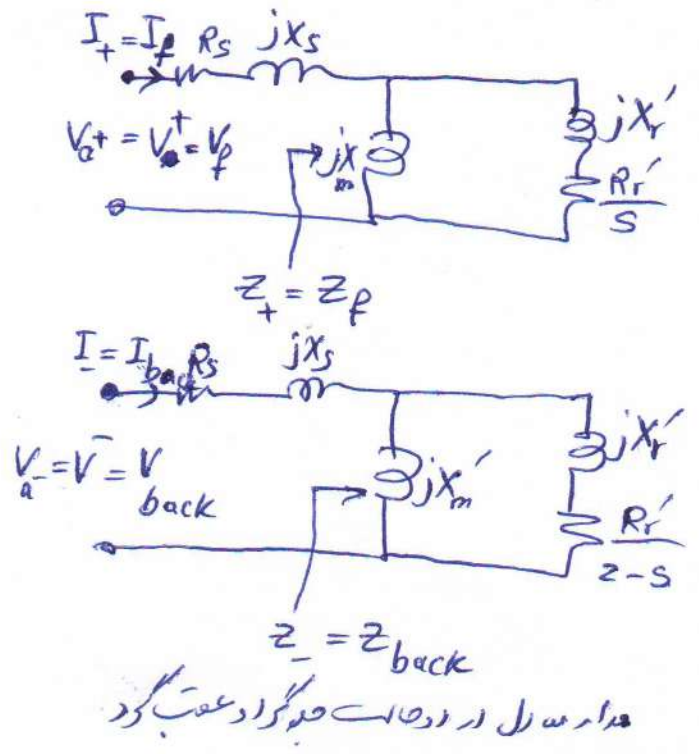 I₊ = I_f Rs jXs
Va⁺ = V⁺ = V_f
jXm
jXr'
Rr'/S
Z₊ = Z_f
I₋ = I_back Rs jXs
Va⁻ = V⁻ = V back
jXm'
jXr'
Rr'/2-S
Z₋ = Z back
مدار معادل در دو حالت جلوگرد و عقب گرد